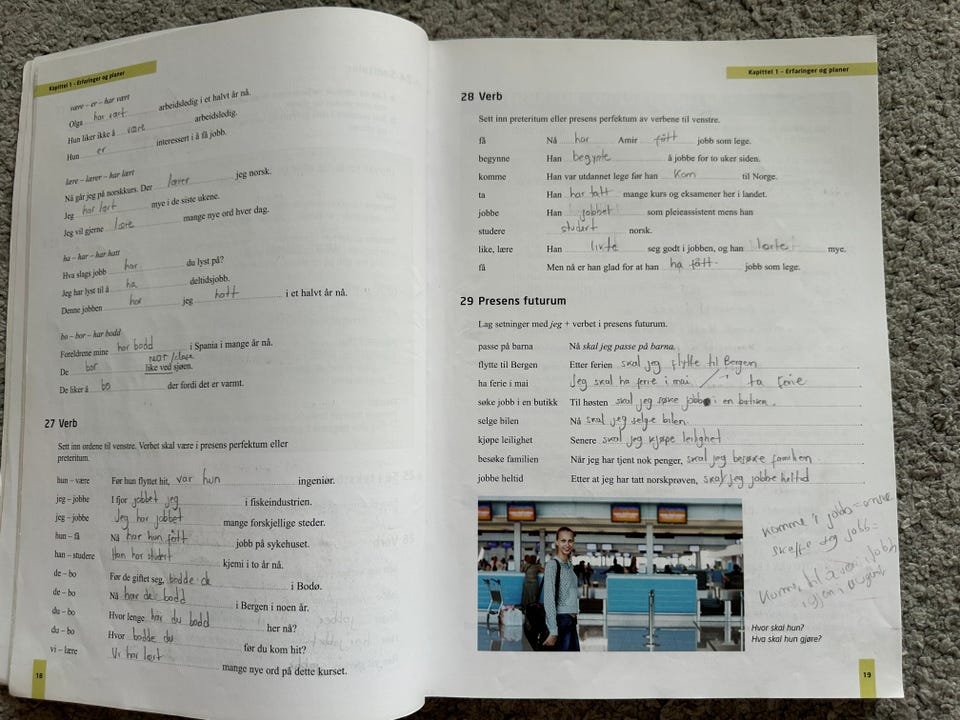 Kapittel 1 – Erfaringer og planer
være – er – har vært
Olga har vært arbeidsledig i et halvt år nå.
Hun liker ikke å være arbeidsledig.
Hun er interessert i å få jobb.
lære – lærer – har lært
Nå går jeg på norskkurs. Der lærer jeg norsk.
Jeg har lært mye i de siste ukene.
Jeg vil gjerne lære mange nye ord hver dag.
ha – har – har hatt
Hva slags jobb har du lyst på?
Jeg har lyst til å ha deltidsjobb.
Denne jobben har jeg hatt i et halvt år nå.
bo – bor – har bodd
Foreldrene mine har bodd i Spania i mange år nå.
De bor like ved sjøen.
De liker å bo der fordi det er varmt.
27 Verb
Sett inn ordene til venstre. Verbet skal være i presens perfektum eller
preteritum.
hun – være Før hun flyttet hit, var hun ingeniør.
jeg – jobbe I fjor jobbet jeg i fiskeindustrien.
jeg – jobbe Jeg har jobbet mange forskjellige steder.
hun – få Nå har hun fått jobb på sykehuset.
han – studere Han har studert kjemi i to år nå.
de – bo Før de giftet seg, bodde de i Bodø.
de – bo Nå har de bodd i Bergen i noen år.
du – bo Hvor lenge har du bodd her nå?
du – bo Hvor bodde du før du kom hit?
vi – lære Vi har lært mange nye ord på dette kurset.
18
Kapittel 1 – Erfaringer og planer
28 Verb
Sett inn preteritum eller presens perfektum av verbene til venstre.
få Nå har Amir fått jobb som lege.
begynne Han begynte å jobbe for to uker siden.
komme Han var utdannet lege før han kom til Norge.
ta Han har tatt mange kurs og eksamener her i landet.
jobbe Han jobbet som pleieassistent mens han
studere studert norsk.
like, lære Han likte seg godt i jobben, og han lærte mye.
få Men nå er han glad for at han ha fått jobb som lege.
29 Presens futurum
Lag setninger med jeg + verbet i presens futurum.
passe på barna Nå skal jeg passe på barna.
flytte til Bergen Etter ferien skal jeg flytte til Bergen
ha ferie i mai Jeg skal ha ferie i mai ta ferie
søke jobb i en butikk Til høsten skal jeg søke jobb i en butikk.
selge bilen Nå skal jeg selge bilen.
kjøpe leilighet Senere skal jeg kjøpe leilighet
besøke familien Når jeg har tjent nok penger, skal jeg besøke familien
jobbe heltid Etter at jeg har tatt norskprøven, skal jeg jobbe heltid
komme i jobb =
skaffe seg jobb =
Hvor skal hun?
Hva skal hun gjøre?
19